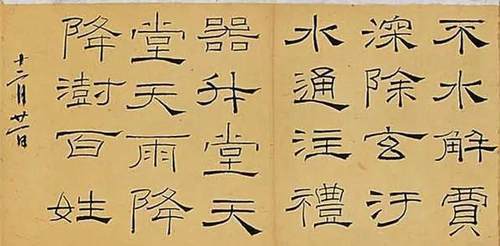 不水解賈
深除玄汙
水通注禮
器升堂天
堂天雨降
降澍百姓
十二月